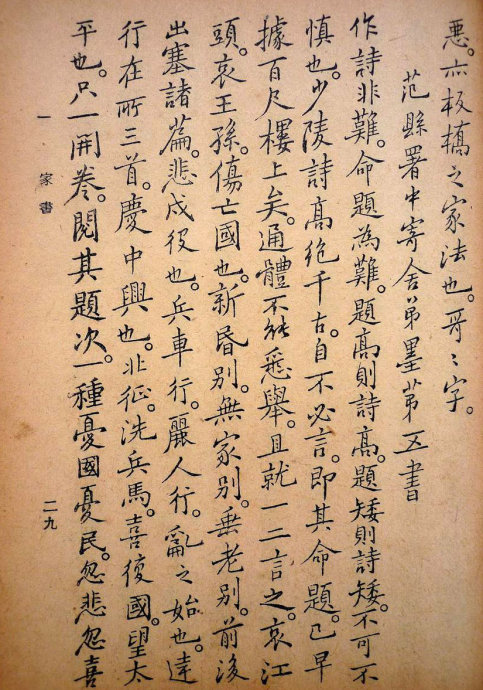 惡。亦板橋之家法也。哥〻字。
范縣署中寄舍弟墨第五書
作詩非難。命題為難。題高則詩高。題矮則詩矮。不可不
慎也。少陵詩高絕千古。自不必言。即其命題。已早
據百尺樓上矣。通體不能悉舉。且就一二言之。哀江
頭。哀王孫。傷亡國也。新昏別。無家別。垂老別。前後
出塞諸篇。悲戍役也。兵車行。麗人行。亂之始也。達
行在所三首。慶中興也。北征。洗兵馬。喜復國。望太
平也。只一開卷。閱其題次。一種憂國憂民。忽悲忽喜
一 家書 二九